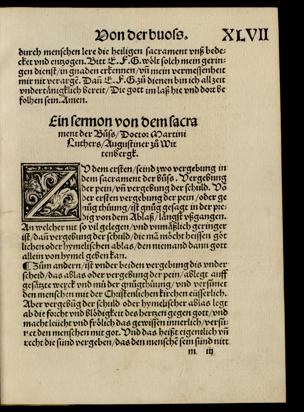 Von der buoss. XLVII
durch menschen lere die heiligen sacrament vnß bede-
ckt vnd entzogen. Bitt E. F. G. wölt solch mein gerin-
gen dienst/ in gnaden erkennen/ vñ mein vermessenheit
mit nit verargē. Dañ E. F. G. zů dienen bin ich all zeit
vnderthäniglich bereit/ Die gott im laß hie vnd dort be
folhen sein. Amen.
Ein sermon von dem sacra
ment der Bůss/ Doctor Martini
Luthers/ Augustiner zů Wit
tenbergk.
Zů dem ersten/ seind zwo vergebung in
dem sacrament der bůss. Vergebung
der pein/ vñ vergebung der schuld. Vō
der ersten vergebung der pein/ oder ge
nůg thůung/ ist gnůg gesagt in der pre-
dig von dem Ablaß/ längst vßgangen.
An welcher nit so vil gelegen/ vnd vnmäßlich geringer
ist/ dañ vergebung der schuld/ die mā möcht heissen göt
lichen oder hymelischen ablas/ den niemand dann gott
allein von hymel geben kan.
¶ Zům andern/ ist vnder beiden vergebung diß vnder
scheid/ das ablas oder vergebung der pein/ ablegt auff
gesätzte werck vnd mü der gnůgthůung/ vnd versünet
den menschen mit der Christenlichen kirchen eüsserlich.
Aber vergebūg der schuld oder hymelischer ablas legt
ab die forcht vnd blödigkeit des hertzen gegen gott/ vnd
macht leücht vnd frölich das gewissen innerlich/ versü-
net den menschen mit got. Vnd das heißt eigentlich vñ
recht die sünd vergeben/ das den menschē sein sünd nitt
m iij